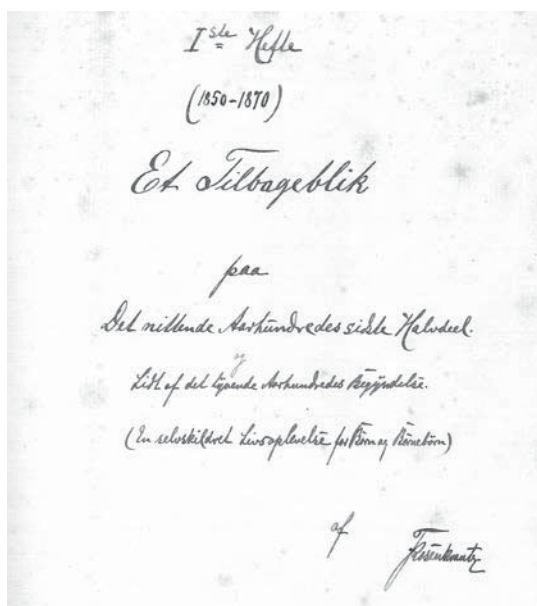 Iste Hefte
(1850-1870)
Et Tilbageblik
paa
Det nittende Aarhundredes sidste Halvdeel.
og
Lidt af det tyvende Aarhundredes Begyndelse.
(En selvskildret Livsoplevelse for Børn og Børnebørn)
af
Rosenkrantz